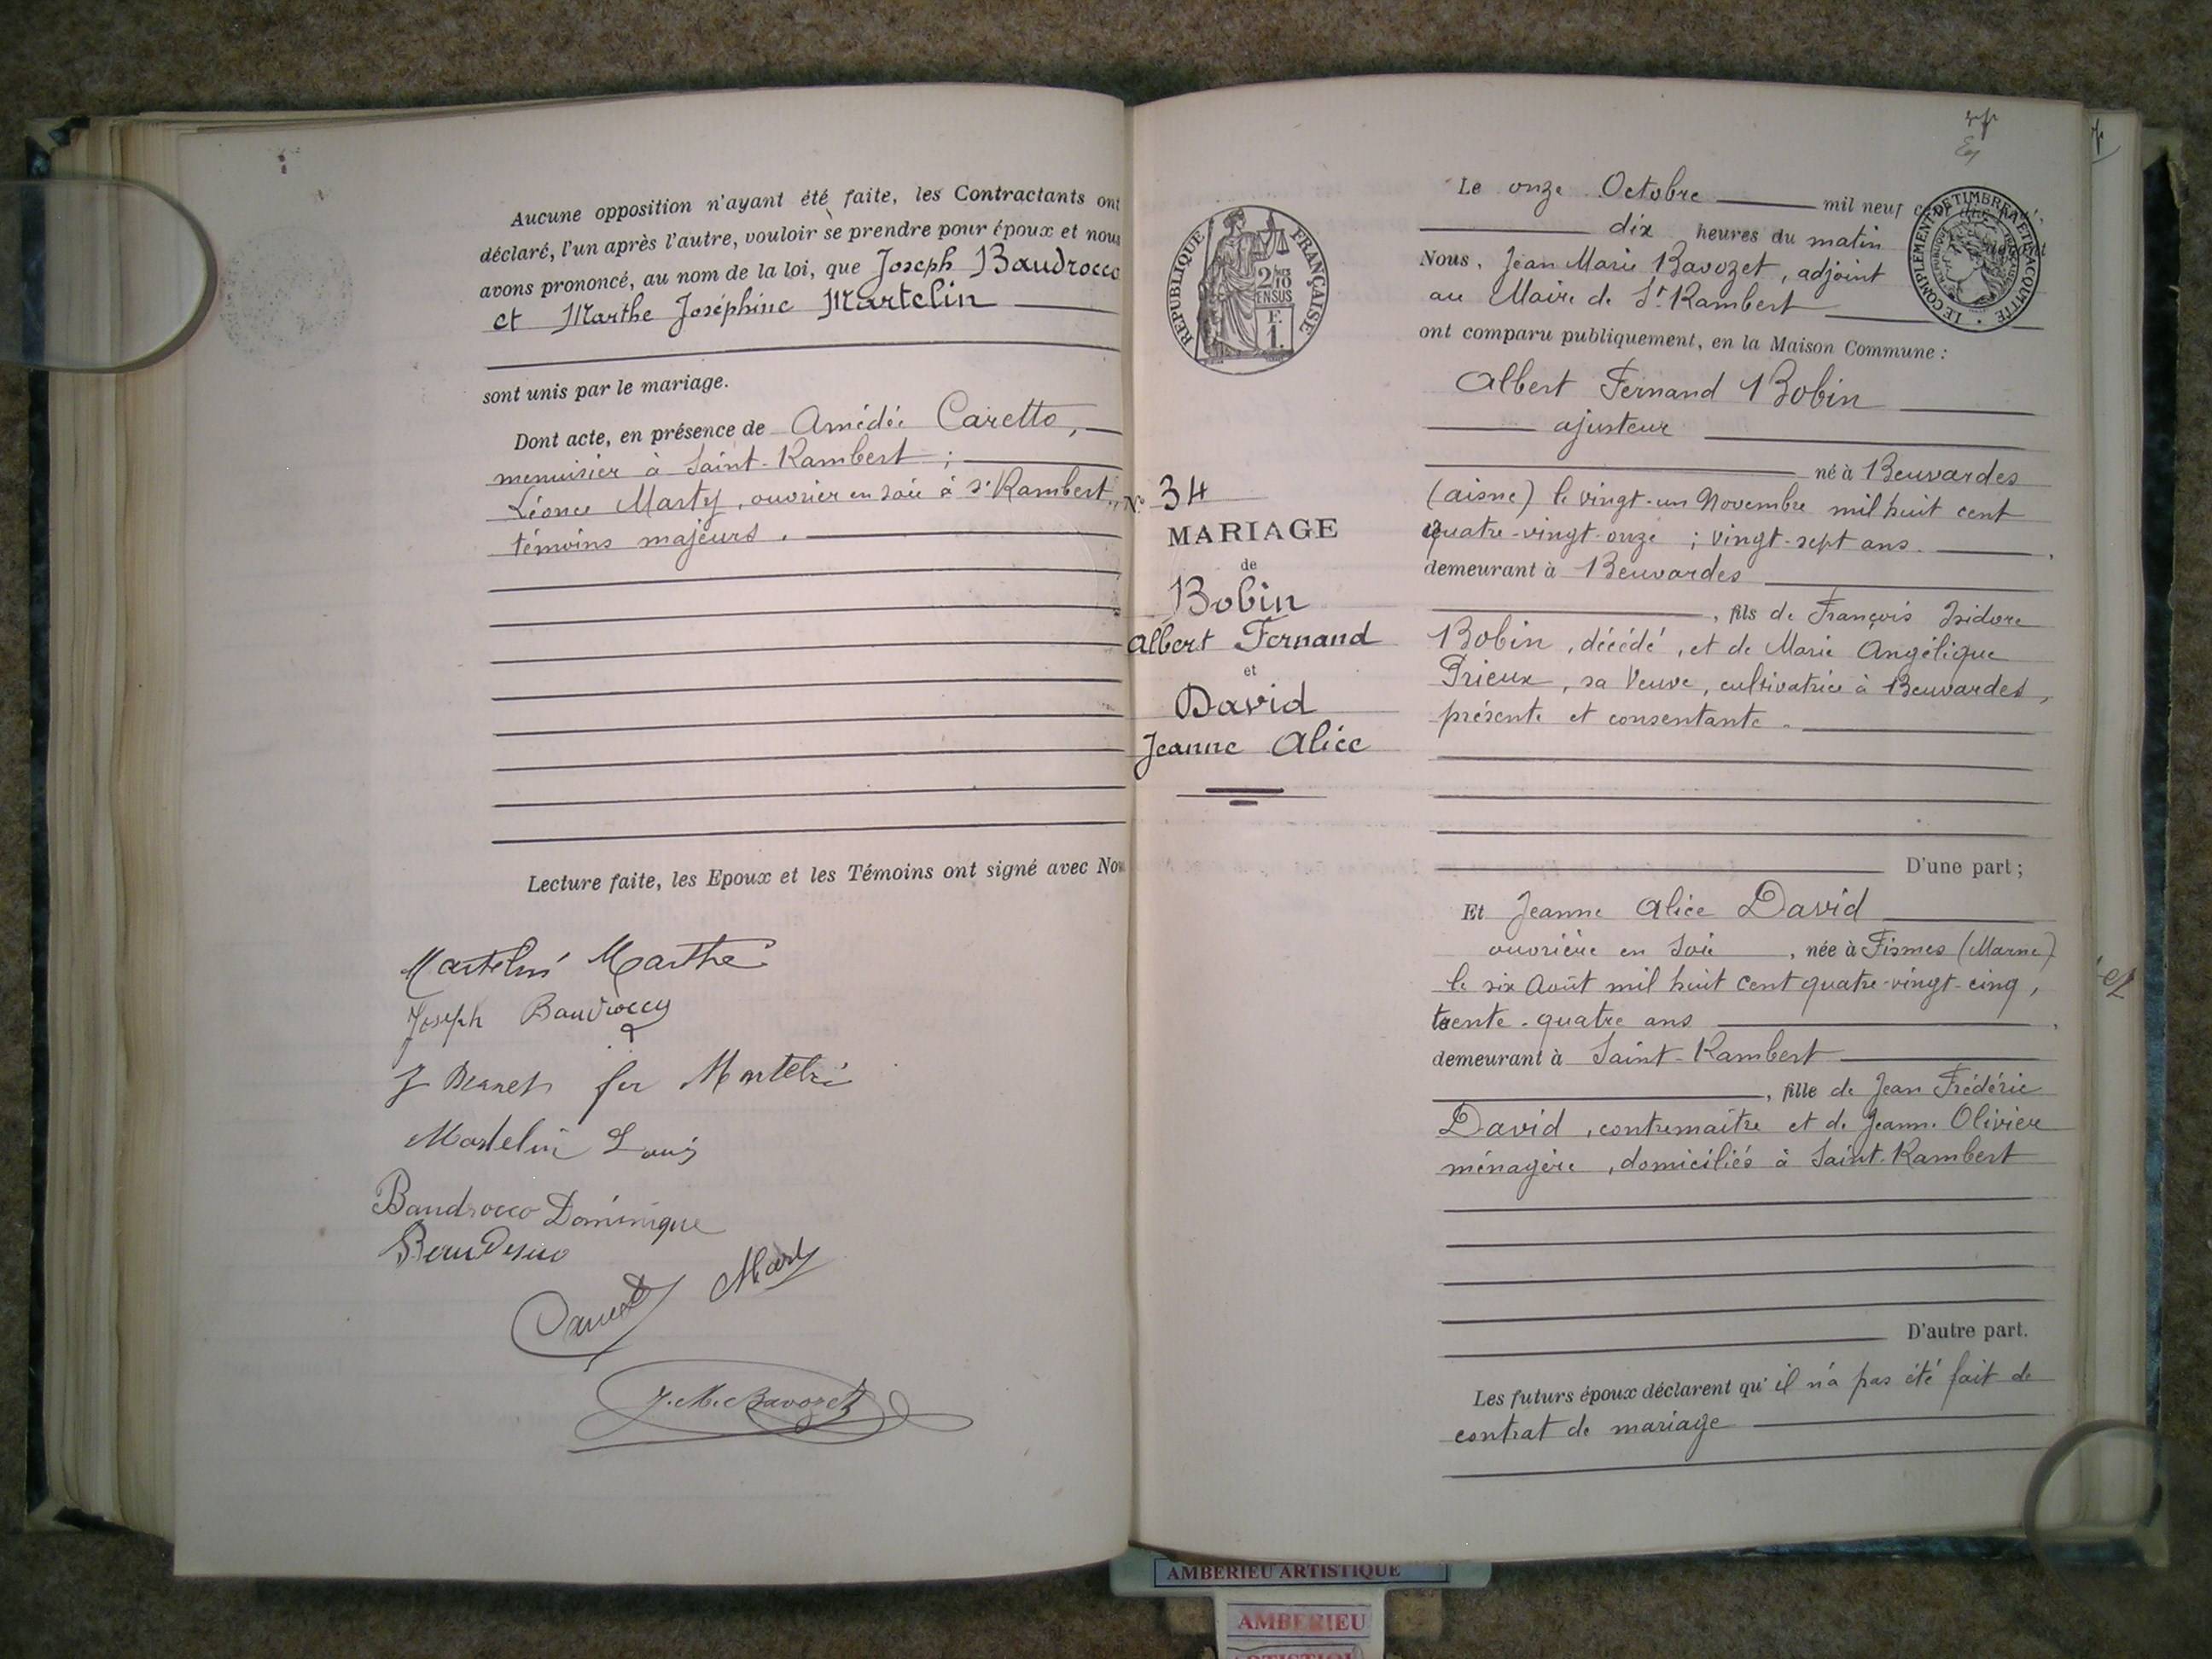 Aucune opposition n'ayant été faite, les Contractants ont
déclaré, l'un après l'autre, vouloir se prendre pour époux et nous
avons prononcé, au nom de la loi, que Joseph Baudrocco
et Marthe Joséphine Martelin
sont unis par le mariage.
Dont acte, en présence de Amédée Caretto,
menuisier à Saint-Rambert ;
Léonce Marty, ouvrier en soie à St Rambert,
témoins majeurs.
Lecture faite, les Epoux et les Témoins ont signé avec Nou
Martelin Marthe
Joseph Baudrocco
Martelin Louis
Baudrocco Dominique
Marty
J. M. Bavozet
RÉPUBLIQUE FRANÇAISE
2/10
EN SUS
F.
1.
N° 34
MARIAGE
de
Bobin
Albert Fernand
et
David
Jeanne Alice
Le onze Octobre mil neuf
dix heures du matin
LE COMPLEMENT DE TIMBRE A ETE ACQUITTE
Nous, Jean Marie Bavozet, adjoint
au Maire de St Rambert
ont comparu publiquement, en la Maison Commune :
Albert Fernand Bobin
ajusteur
né à Beuvardes
(Aisne) le vingt-un Novembre mil huit cent
quatre-vingt-onze ; vingt-sept ans.
demeurant à Beuvardes
, fils de François Isidore
Bobin, décédé, et de Marie Angélique
Prieux, sa Veuve, cultivatrice à Beuvardes,
présente et consentante.
D'une part ;
Et Jeanne Alice David
ouvrière en Soie, née à Fismes (Marne)
le six Août mil huit cent quatre-vingt-cinq,
trente-quatre ans
demeurant à Saint-Rambert
, fille de Jean Frédéric
David, contremaître et de Jeanne Olivier
ménagère, domiciliés à Saint-Rambert
D'autre part.
Les futurs époux déclarent qu'il n'a pas été fait de
contrat de mariage
AMBERIEU ARTISTIQUE
AMBERIEU